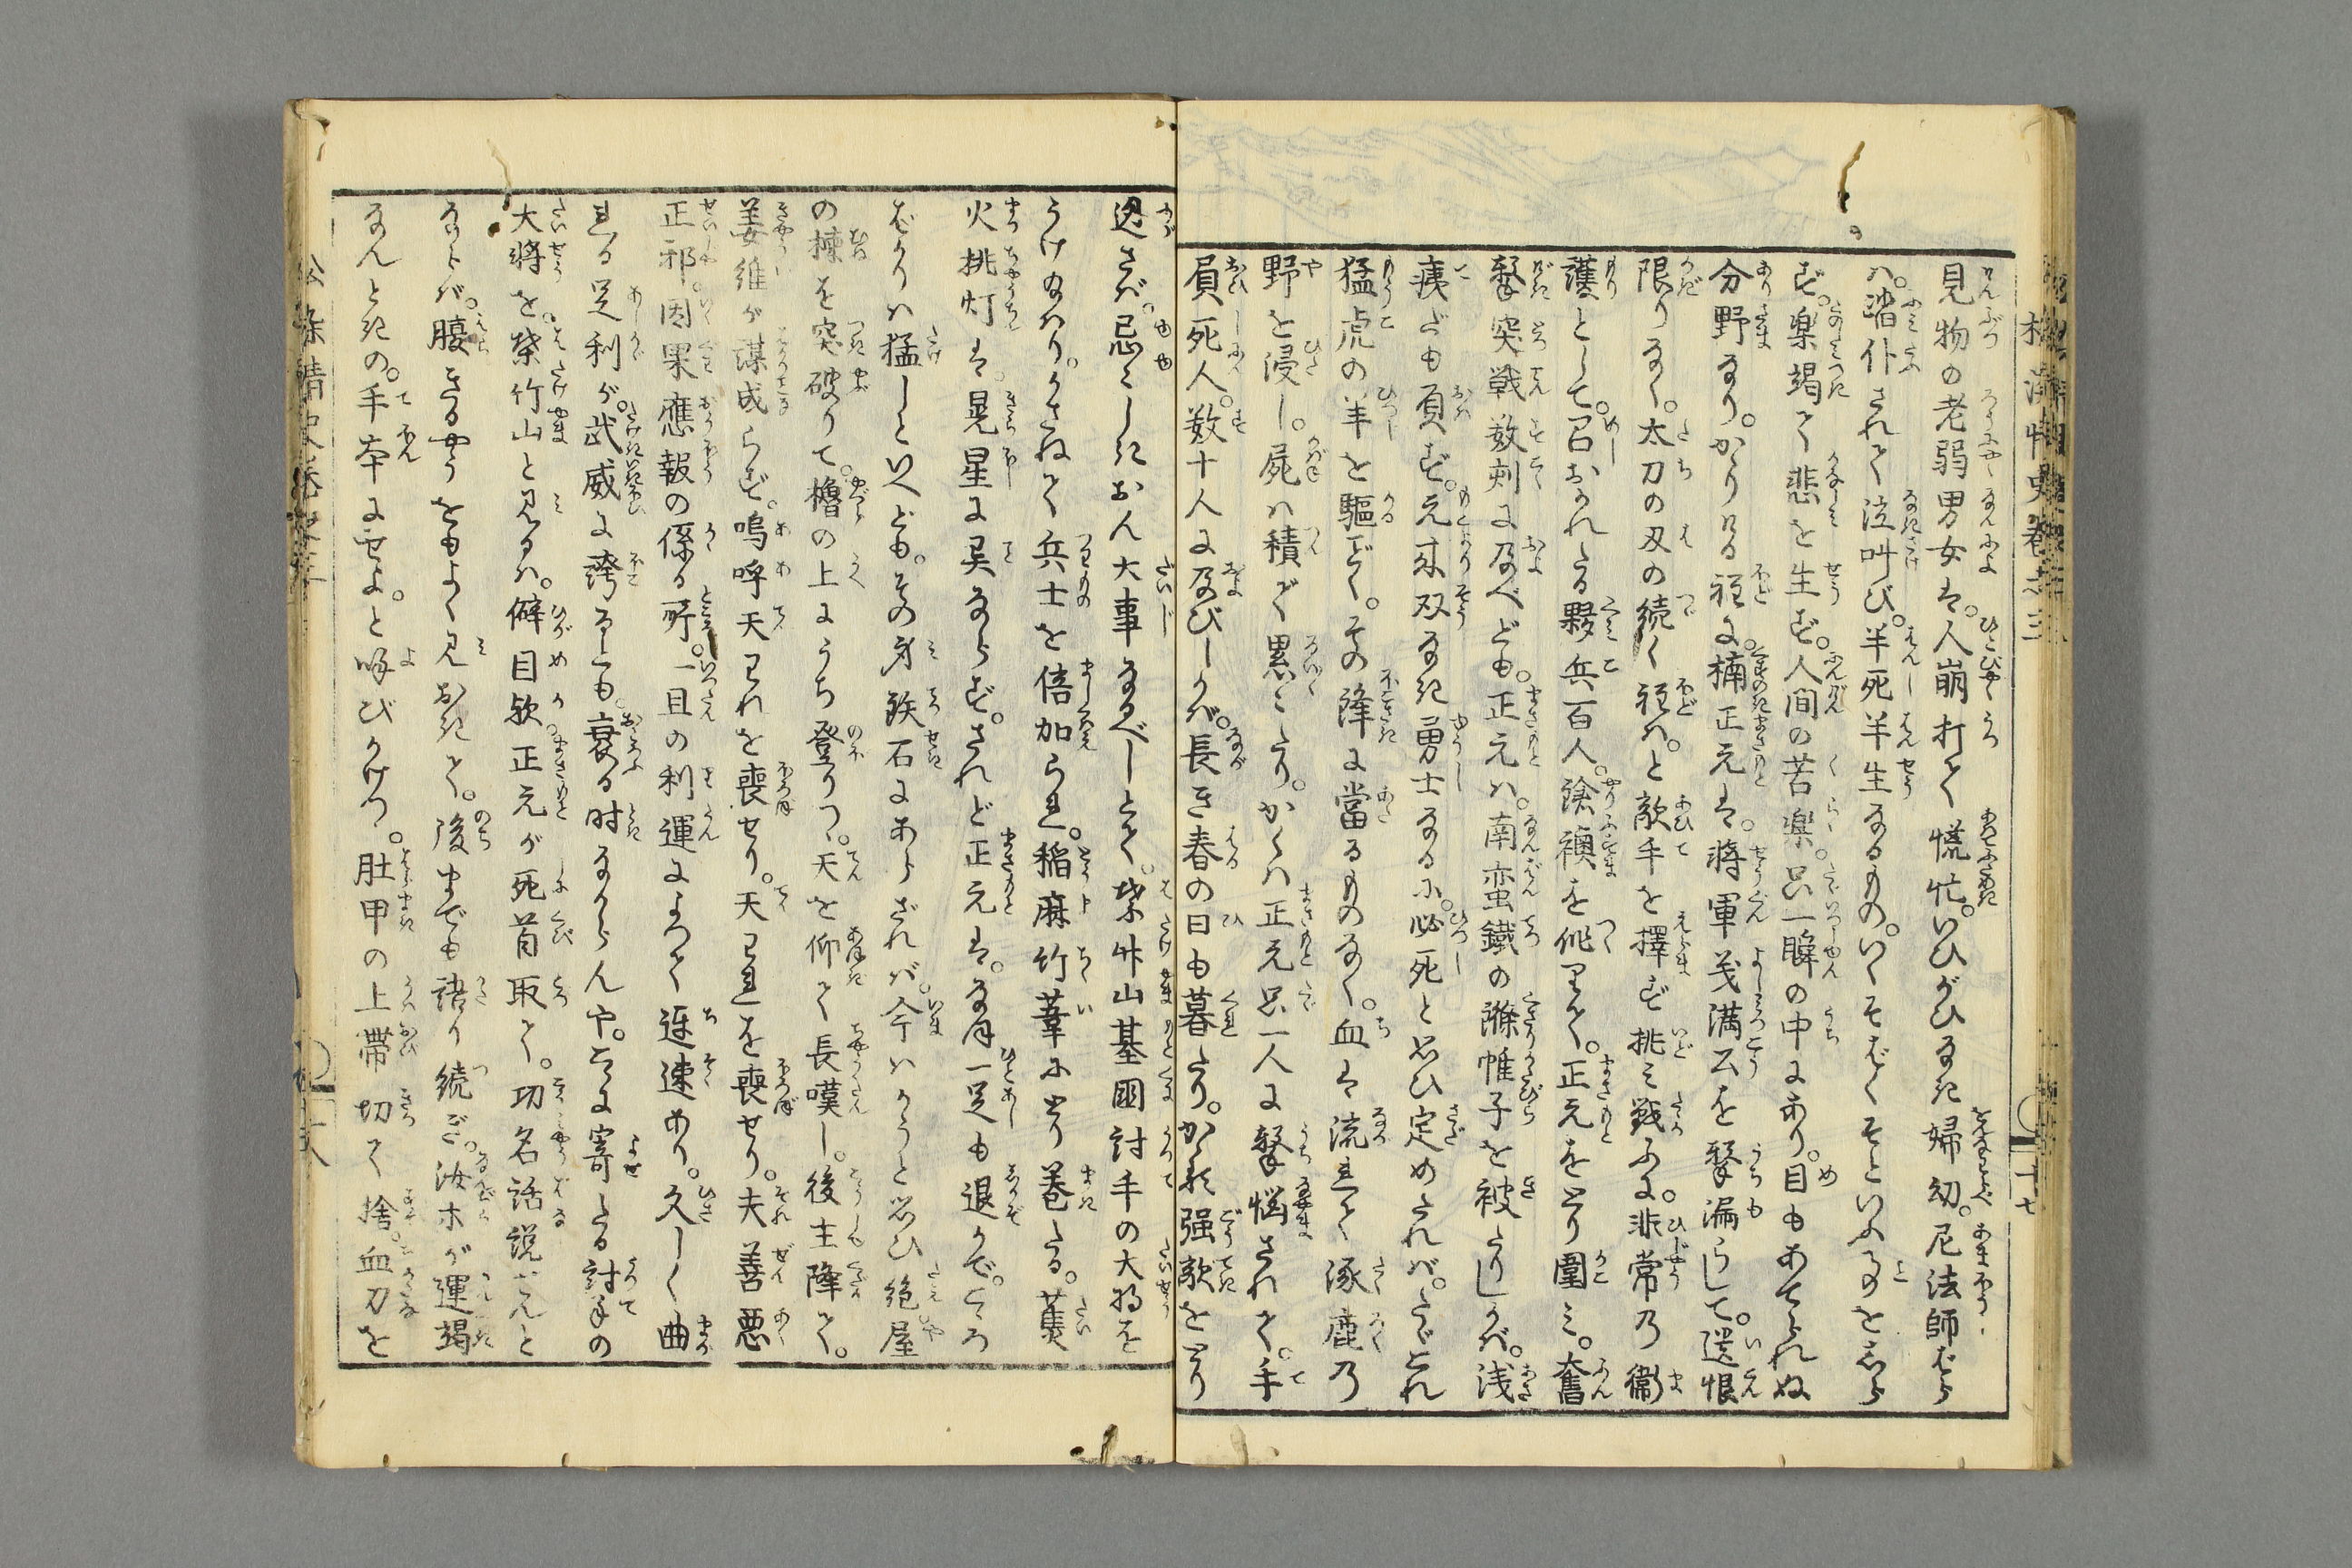 見物の老弱男女は。人崩打て慌忙。いひがひなき婦幼。尼法師ばら
ハ。踏仆されて泣叫び。半死半生なるもの。いくそばくそといふ事をしら
ず。楽竭て悲を生ず。人間の苦楽。只一瞬の中にあり。目もあてられぬ
分野なり。かゝりける程に。楠正元は。将軍義満公を撃漏らして。遺恨
限りなく。太刀の刃の続く程は。と敵手を擇ず挑み戦ふに。非常乃衛
護として。召おかれたる夥兵百人。鎗襖を作りて。正元をとり圍み。奮
撃突戦数刻に及べども。正元ハ。南蛮鐵の鏈帷子を被たりしかば。浅
痍だも負ず。元来双なき勇士なるに。必死と思ひ定めたれば。たゞこれ
猛虎の羊を驅ごとく。その鋒に當るものなく。血は流れて涿鹿乃
野を浸し。屍ハ積で累々たり。かくハ正元只一人に撃悩されて。手
負死人。数十人に及びしかば。長き春の日も暮たり。かゝる強敵をとり
逃さば。忌々しきおん大事なるべしとて。柴竹山基國討手の大将を
うけ給はり。かさねて兵士を倍加られ。稲麻竹葦に取り巻たる。薫
火挑灯は。晃星に異ならず。されど正元は。なほ一足も退かで。こゝろ
ばかりハ猛しといへども。その身鉄石にあらざれば。今ハかうと思ひ絶。屋
の棟を突破りて。櫓の上にうち登りつゝ。天を仰て長嘆し。後主降て。
姜維が謀成らず。嗚呼天われを喪せり。天われを喪せり。夫善悪
正邪。因果應報の係る所。一旦の利運によつて遅速あり。久しく曲
れる足利が。武威に誇るとも。衰る時なからんや。こゝに寄たる討手の
大将を。柴竹山と見るハ。僻目歟。正元が死首取て。功名話説さんと
ならば。腹きるやうをもよく見おきて。後までも語り続ぎ。汝等が運竭
なんときの。手本にせよ。と呼びかけつゝ。肚甲の上帶切て捨。血刀を